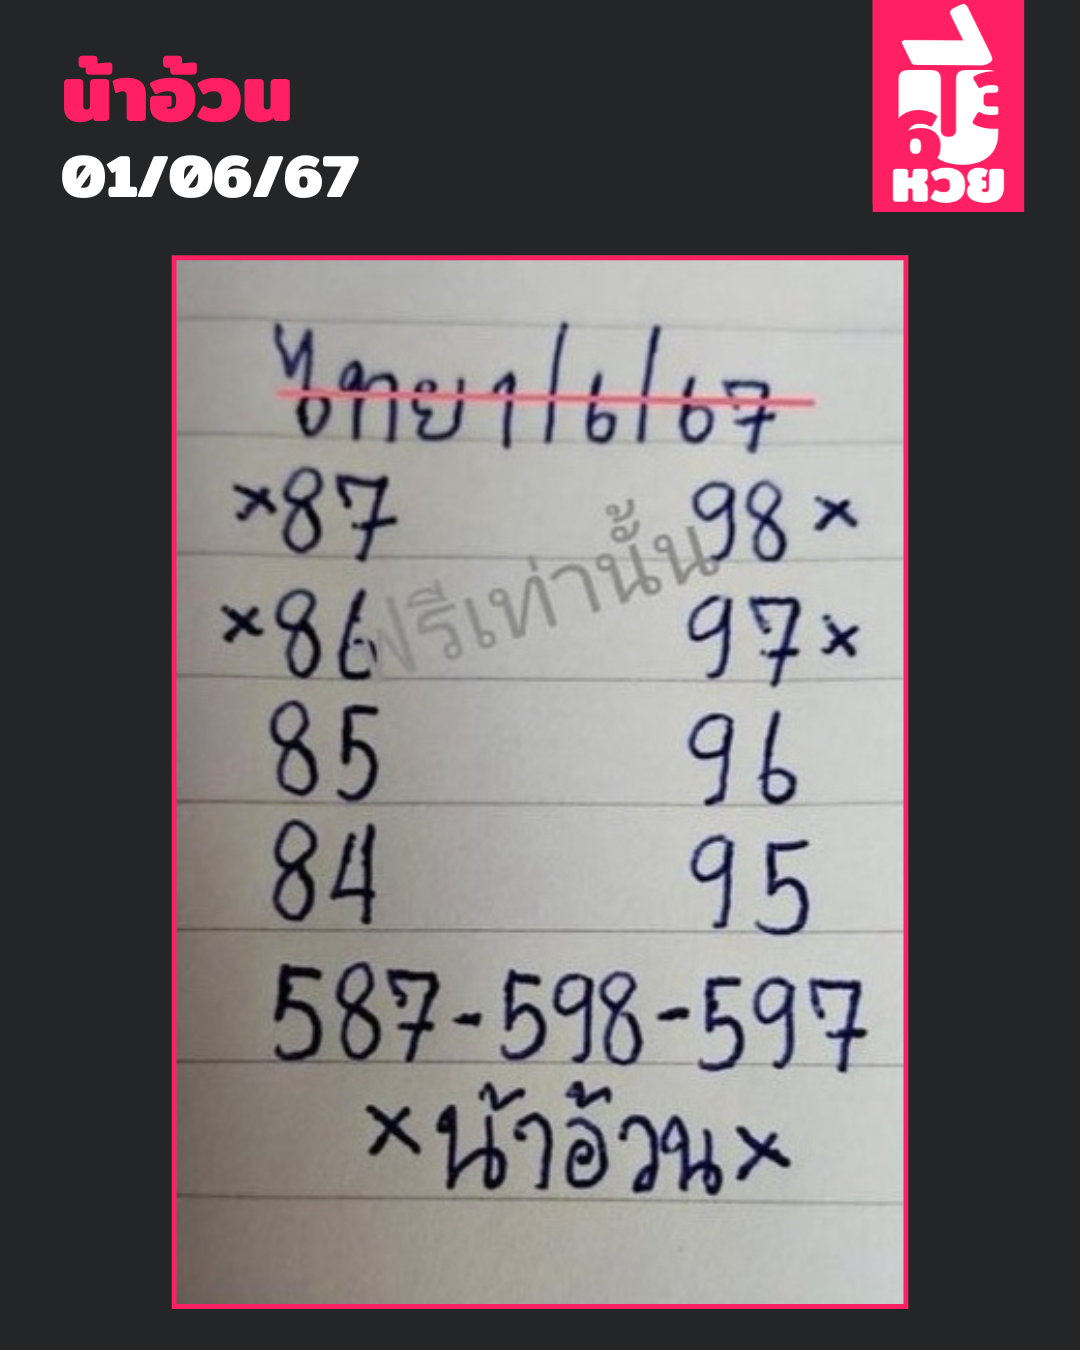 น้าอ้วน
01/06/67
ชี้
หวย
ไทย 1/6/67
×87 98×
×86 97×
ฟรีเท่านั้น
85 96
84 95
587-598-597
×น้าอ้วน×